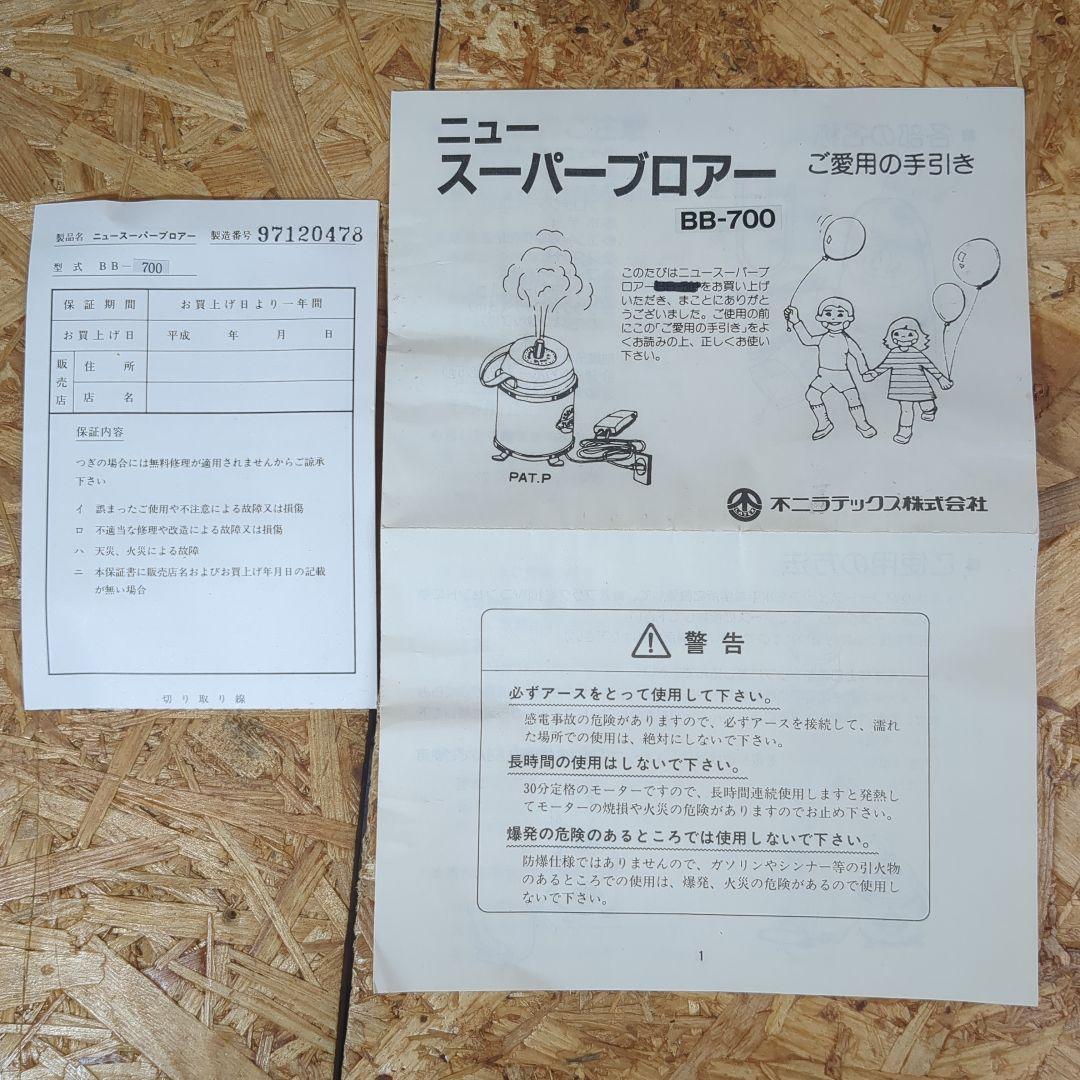 製品名 ニュースーパーブロアー 製造番号 97120478
型式 BB-700
保証期間 お買上げ日より一年間
お買上げ日 平成 年 月 日
販売店 住所
店名
保証内容
つぎの場合には無料修理が適用されませんからご諒承
下さい
イ 誤まったご使用や不注意による故障又は損傷
ロ 不適当な修理や改造による故障又は損傷
ハ 天災、火災による故障
ニ 本保証書に販売店名およびお買上げ年月日の記載
が無い場合
切り取り線
ニュー
スーパーブロアー
ご愛用の手引き
BB-700
このたびはニュースーパーブ
ロアーをお買い上げ
いただき、まことにありがと
うございました。ご使用の前
にこの「ご愛用の手引き」をよ
くお読みの上、正しくお使い
下さい。
PAT.P
不二ラテックス株式会社
警告
必ずアースをとって使用して下さい。
感電事故の危険がありますので、必ずアースを接続して、濡れ
た場所での使用は、絶対にしないで下さい。
長時間の使用はしないで下さい。
30分定格のモーターですので、長時間連続使用しますと発熱し
てモーターの焼損や火災の危険がありますのでお止め下さい。
爆発の危険のあるところでは使用しないで下さい。
防爆仕様ではありませんので、ガソリンやシンナー等の引火物
のあるところでの使用は、爆発、火災の危険があるので使用し
ないで下さい。
1